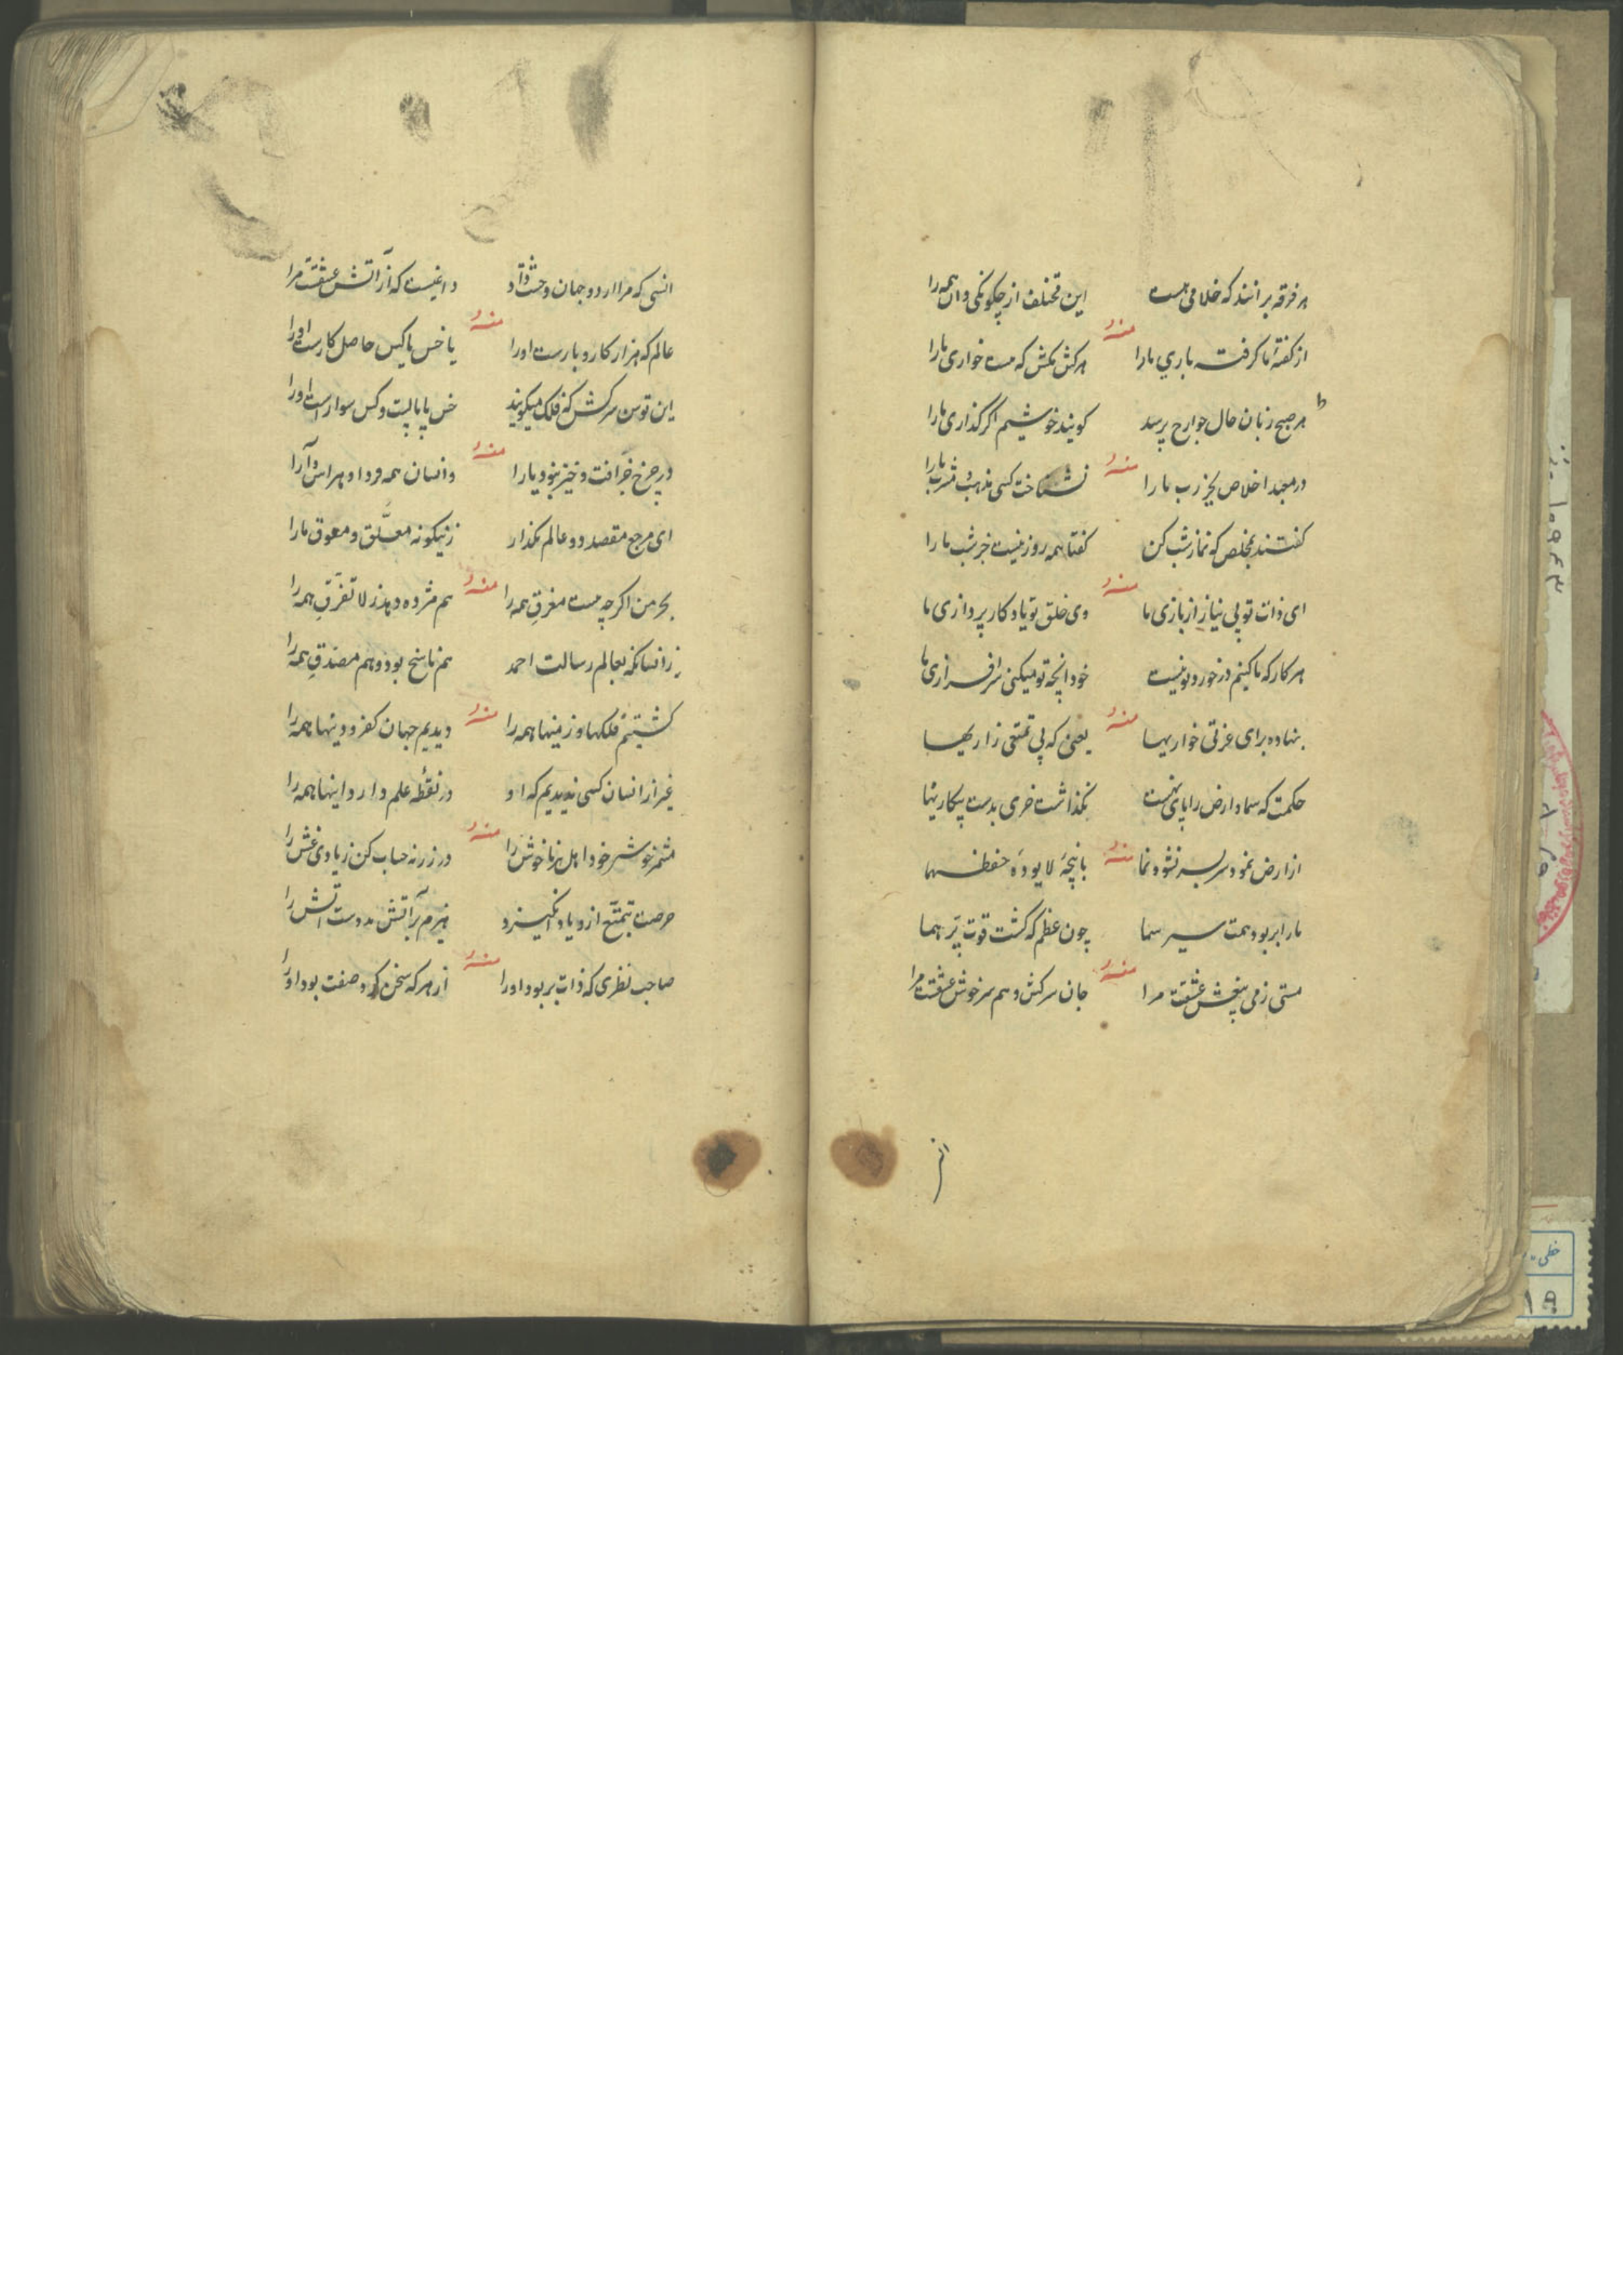 هر فرقه برانند که خلافی هست این مختلف از چگونگی دان همه را
منه
از کفته ما کرفت باری ما را هر کش مکش که هست خواری ما را
هر صبح زبان حال جوارح پرسد کویند خوشیم اکر کذاری ما را
منه
در معبد اخلاص بجز رب ما را نشناخت کسی مذهب و مشرب ما را
کفتند بمخلص که نماز شب کن کفتا همه روز نیست جز شب ما را
منه
ای ذات تو بی نیاز از بازی ما وی خلق تو یاد کار پردازی ما
هر کار که ما کنیم در خورد تو نیست خود آنچه تو میکنی سرافرازی ما
منه
بنهاده برای عزتی خواریها یعنی که پی تمتعی زاریها
حکمت که سما و ارض را پای نهست نکذاشت خری بدست بیکاریها
منه
از ارض نمود سر بسر نشو و نما با پنجه لا یوده حفظهما
ما را بر بود همت سیر سما چون عظم که کشت قوت پر هما
منه
مستی ز می بیغش عشقت مرا جان سرکش و هم سرخوش عشقت مرا
از
انسی که مرا از دو جهان وحشت داد داغیست که از آتش عشقت مرا
منه
عالم که هزار کار و بارست او را یا خس یا کس حاصل کارست او را
این توسن سرکش که فلک میکویند خس پا بابست و کس سوارست او را
منه
در چرخ جز آفت و خیز نبود یارا وانسان همه فردا و هراس و آرا
ای مرجع مقصد دو عالم مکذار زینکونه معلق و معوق ما را
منه
بحر من اکرچه هست مغرق همه را هم مژده دهد ز لا تفرق همه را
زانسانکه بعالم رسالت احمد هم ناسخ بود و هم مصدق همه را
منه
کشتیم فلکها و زمینها همه را دیدیم جهان کفر و دینها همه را
غیر از انسان کسی ندیدیم که او در نقطه علم دارد اینها همه را
منه
مشمر خوش خود اهل نزنا خوش را در زر نه حساب کن زیادی غش را
حرصت بتمتع ازدیاد انکیزد هیزم بر آتش مددست آتش را
منه
صاحب نظری که ذات بر بود او را از هر که سخن کرد صفت بود او را
خطی